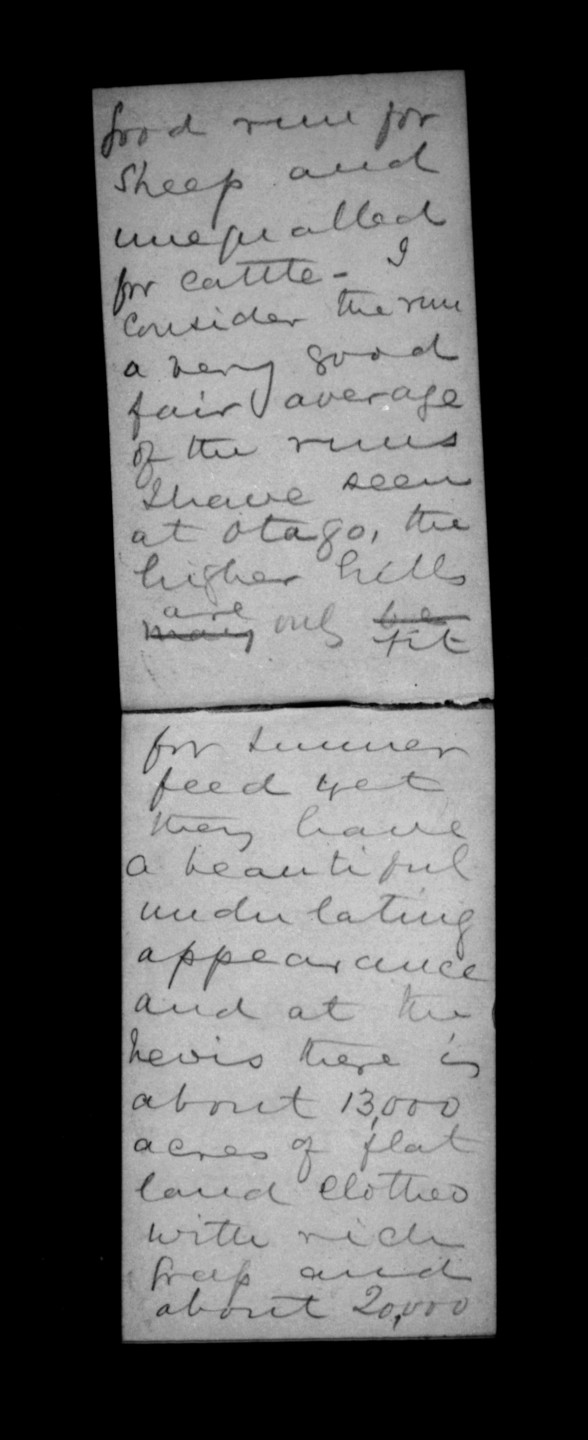 good run for
Sheep and
unequalled
for cattle - I
consider the run
a very good
fair average
of the runs
I have seen
at Otago, the
higher hills
are
may only be
fit
for summer
feed yet
they have
a beautiful
undulating
appearance
and at the
Nevis there is
about 13,000
acres of flat
land clothed
with rich
grass and
about 20,000